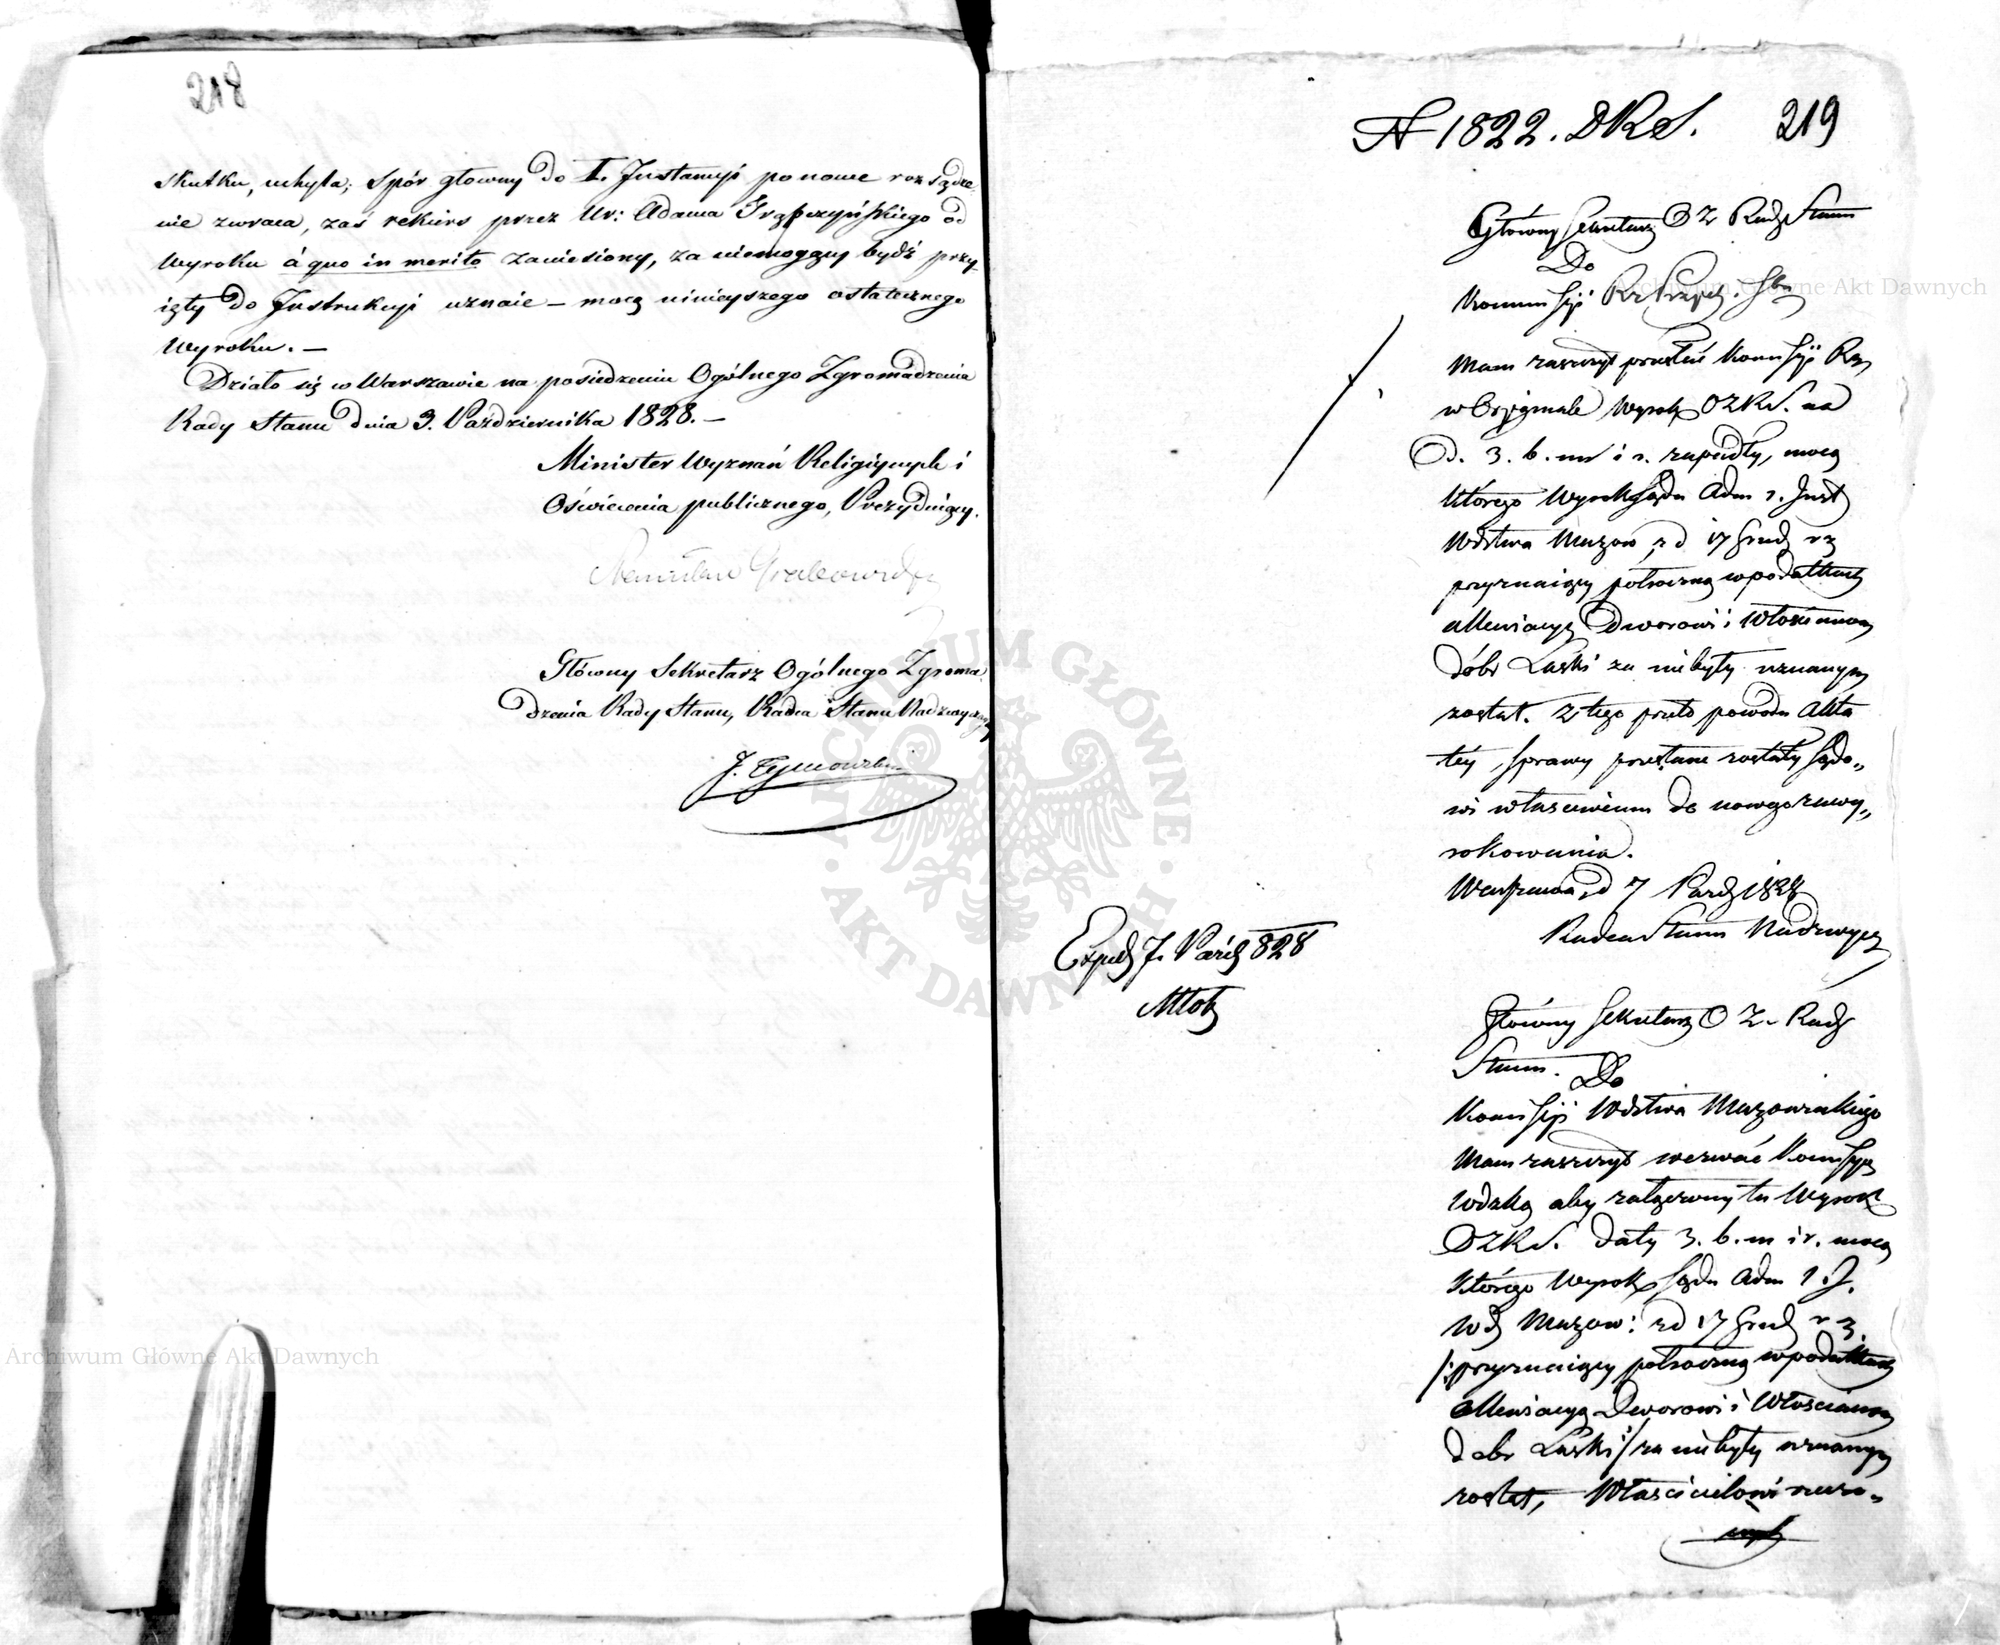 218
skutku, uchyla; spór głowny do I. Instancyi ponowne rozsądze-
nie zwraca, zaś rekurs przez Ur: Adama Trzpczyńskiego od
wyroku à quo in merito zaniesiony, za niemogący bydź przy-
ięty do Instrukcyi uznaie – mocą ninieyszego ostatecznego
wyroku. –
Działo się w Warszawie na posiedzeniu Ogólnego Zgromadzenia
Rady Stanu dnia 3. Października 1828. –
Minister Wyznań Religiynych i
Oświecenia publicznego, Prezyduiący.
Stanisław Grabowski
Główny Sekretarz Ogólnego Zgroma-
dzenia Rady Stanu, Radca Stanu Nadzwyczayny
J. Tymowski
N 1822. DRS. 219
Główny Sekretarz OZ Rady Stanu
Do
Kommissyi Rz Przych. Skar
Mam zaszczyt przesłać Komissyi Rz
w Oryginale Wyrok OZRS. na
d. 3. b. m i r. zapadły, mocą
którego Wyrok Sądu Adm 1. Inst
Wdztwa Mazow z d 17 Grud r z
przyznaiący półroczną w podatkach
allewiacyą Dworowi i Włościanom
dóbr Laski za niebyły uznanym
został. Z tego przeto powodu Akta
téy sprawy przesłane zostały Sądo„
wi właściwemu do nowego zawy„
rokowania.
Warszawa, d 7 Paźd 1828
Radca Stanu Nadzwycz
Exped 7. Paźdz 828
Młok
Główny Sekretarz O Z. Rady
Stanu.
Do
Komissyi Wdztwa Mazowieckiego
Mam zaszczyt wezwać Komissyą
Wdzką aby załączony tu Wyrok
OZRS. daty 3. b. m i r. mocą
którego Wyrok Sądu Adm 1. I.
Wdz Mazow: z d 17 Grud r z.
/: przyznaiący półroczną w podatkach
allewiacyą Dworowi i Włościanom
dobr Laski :/ za niebyły uznanym
został, Właścicielowi rzeczo„
nych
Archiwum Główne Akt Dawnych
Archiwum Główne Akt Dawnych
ARCHIWUM GŁÓWNE · AKT DAWNYCH ·